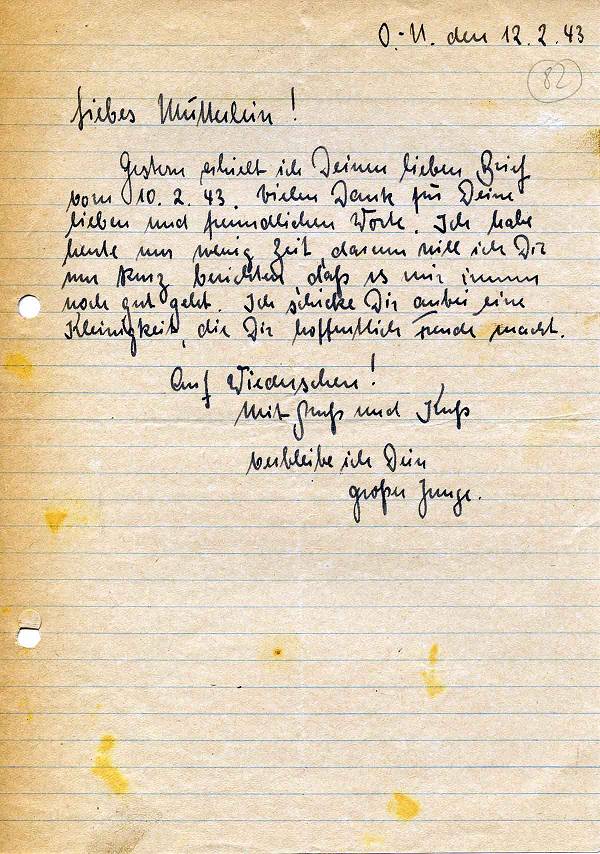 O.-U. den 12.2.43
82
Liebes Mütterlein!
Gestern erhielt ich Deinen lieben Brief
vom 10.2.43. Vielen Dank für Deine
lieben und freundlichen Worte. Ich habe
heute nur wenig Zeit, darum will ich Dir
nur kurz berichten, daß es mir immer
noch gut geht. Ich schicke Dir anbei eine
Kleinigkeit, die Dir hoffentlich Freude macht.
Auf Wiedersehen!
Mit Gruß und Kuß
verbleibe ich Dein
großer Junge.